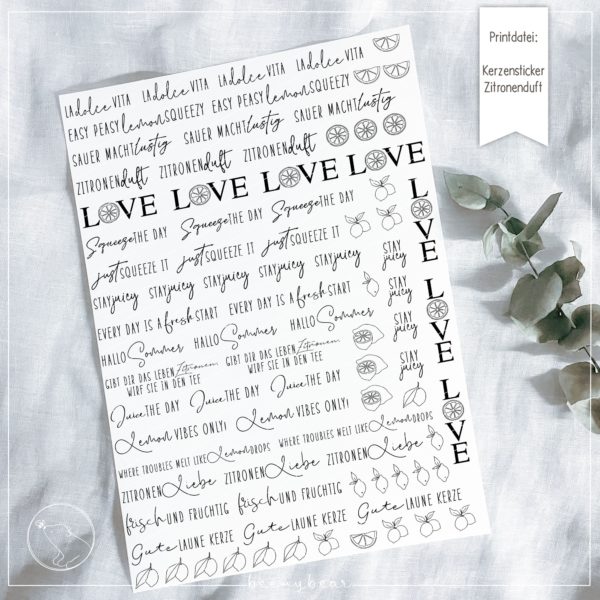 Printdatei:
Kerzensticker
Zitronenduft
LA dolce VITA LA dolce VITA LA dolce VITA LA dolce VITA
EASY PEASY lemon SQUEEZY EASY PEASY lemon SQUEEZY
SAUER MACHT lustig SAUER MACHT lustig SAUER MACHT lustig
ZITRONENduft ZITRONENduft ZITRONENduft
LOVE LOVE LOVE LOVE
Squeeze THE DAY Squeeze THE DAY Squeeze THE DAY
just SQUEEZE IT just SQUEEZE IT just SQUEEZE IT
STAY juicy STAY juicy STAY juicy STAY juicy STAY juicy
EVERY DAY IS A fresh START EVERY DAY IS A fresh START
HALLO Sommer HALLO Sommer HALLO Sommer
GIBT DIR DAS LEBEN Zitronen GIBT DIR DAS LEBEN Zitronen
WIRF SIE IN DEN TEE WIRF SIE IN DEN TEE
Juice THE DAY Juice THE DAY Juice THE DAY
Lemon VIBES ONLY! Lemon VIBES ONLY!
WHERE TROUBLES MELT LIKE Lemon DROPS WHERE TROUBLES MELT LIKE Lemon DROPS
ZITRONEN Liebe ZITRONEN Liebe ZITRONEN Liebe
frisch UND FRUCHTIG frisch UND FRUCHTIG
Gute LAUNE KERZE Gute LAUNE KERZE Gute LAUNE KERZE
STAY
juicy
STAY
juicy
STAY
juicy
STAY
juicy
LOVE
LOVE
LOVE
beemybear